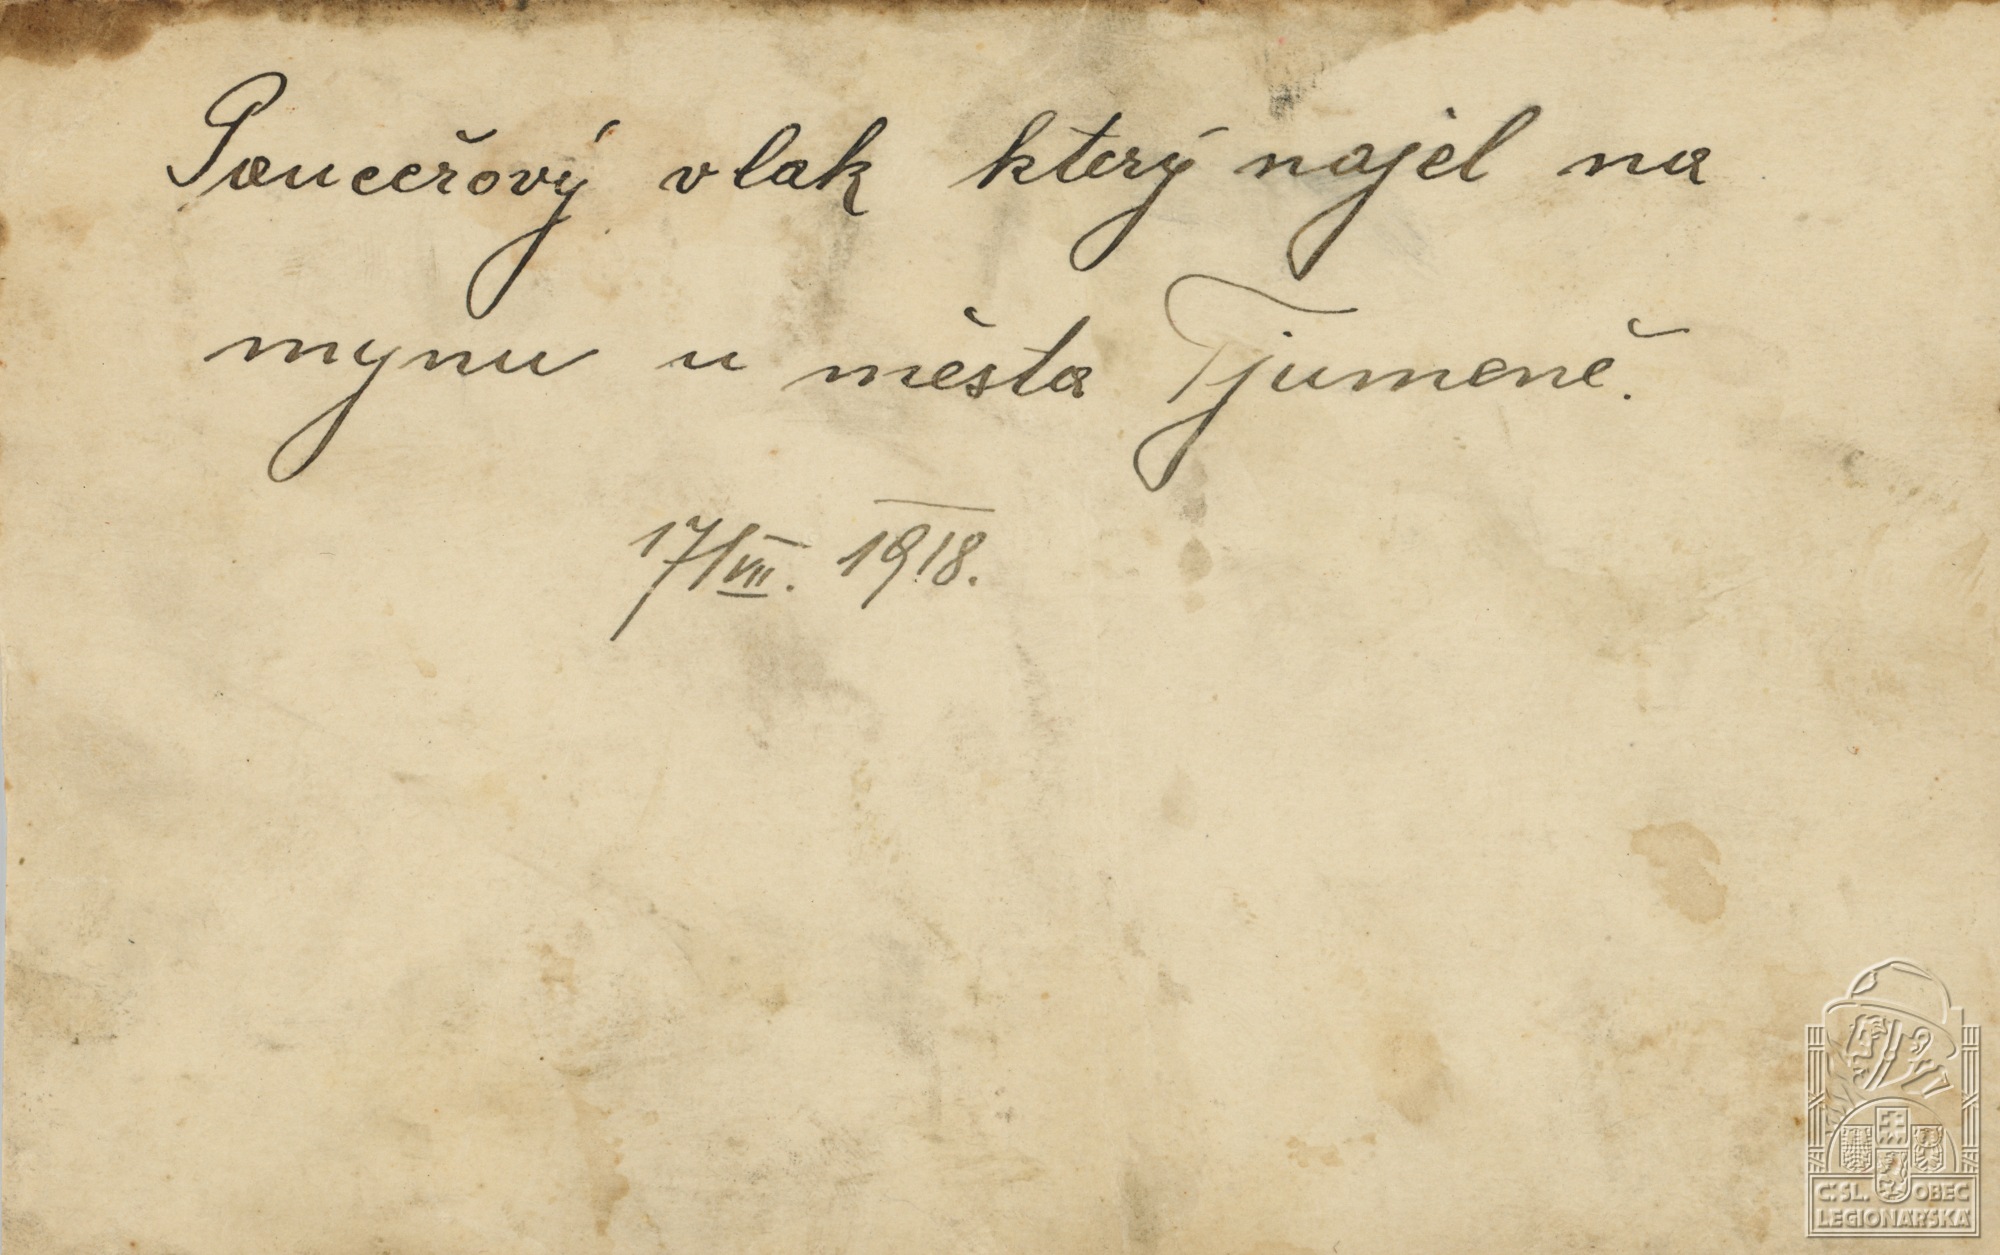 Pancéřový vlak který najel na
mynu u města Tjumeně.
17/VII. 1918.
Č:SL. OBEC
LEGIONÁŘSKÁ